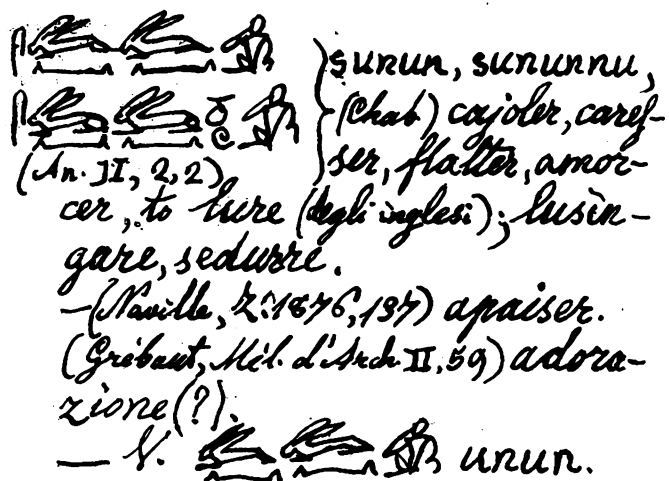 𓋴𓃹𓈖𓃹𓈖𓀁 sunun, sununnu,
𓋴𓃹𓈖𓃹𓈖𓏌𓏲𓀁 (Chab) cajoler, cares-
(An. II, 2, 2) ser, flatter, amor-
cer, to lure (degli inglesi); lusin-
gare, sedurre.
—(Naville, Z. 1876, 137) apaiser.
(Grébaut, Mél. d'Arch. II, 59) adora-
zione (?).
— V. 𓃹𓈖𓃹𓈖𓀁 unun.